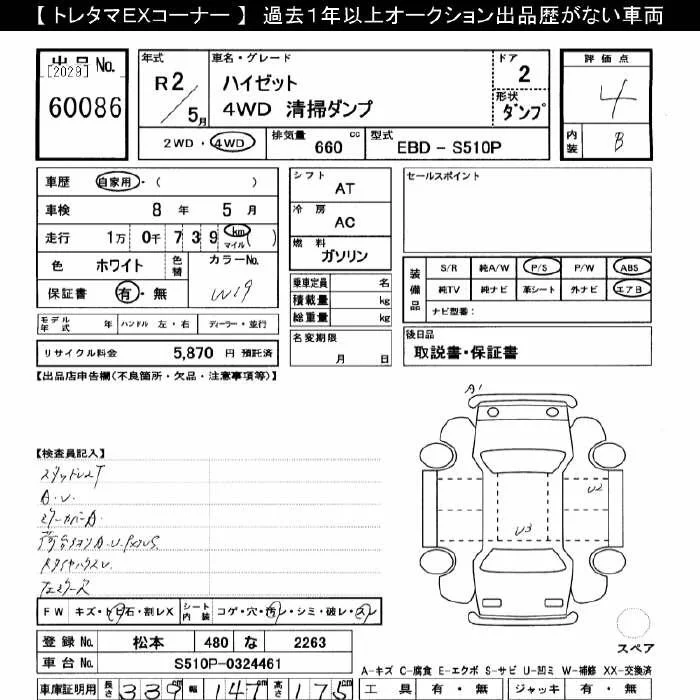 【 トレタマEXコーナー 】 過去1年以上オークション出品歴がない車両
出品 No.
[2029]
60086
年式
R2/5月
車名・グレード
ハイゼット
4WD 清掃ダンプ
ドア
2
形状
ダンプ
評価点
4
内装
B
2WD・4WD
排気量
660 cc
型式
EBD - S510P
車歴 自家用・( )
車検 8年 5月
走行 1万 0千 7 3 9 km マイル ( )
色 ホワイト 色替 カラーNo.
保証書 有・無 W19
モデル年式 年 ハンドル 左・右 ディーラー・並行
リサイクル料金 5,870 円 預託済
シフト
AT
冷房
AC
燃料
ガソリン
乗車定員 名
積載量 kg
総重量 kg
名変期限
月 日
セールスポイント
装備品
S/R 純A/W P/S P/W ABS
純TV 純ナビ 革シート 外ナビ エアB
ナビ型番:
後日品
取説書・保証書
【出品店申告欄(不良箇所・欠品・注意事項等)】
A1
U2
U3
【検査員記入】
A.U.
ミラーカバーA
FW キズ・トビ石・割レX シート内装 コゲ・穴・汚レ・シミ・破レ・スレ
登録 No. 松本 480 な 2263
車台 No. S510P-0324461
車庫証明用 長さ 339cm 幅 147cm 高さ 175cm
スペア
A-キズ C-腐食 E-エクボ S-サビ U-凹ミ W-補修 XX-交換済
工具 有・無 ジャッキ 有・無